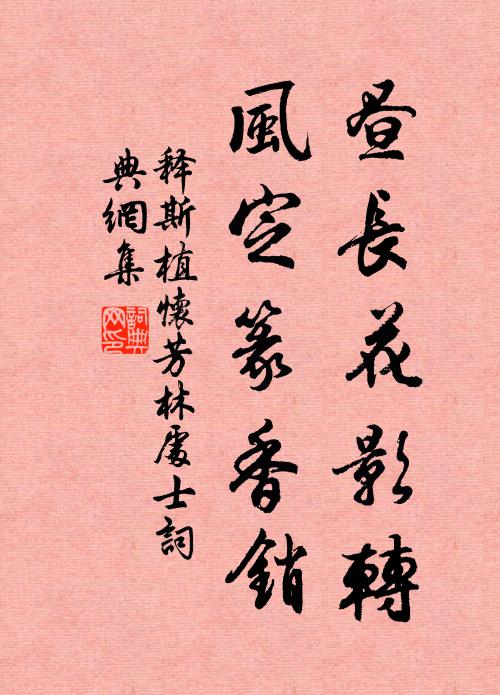 昼長花影轉
風定篆香銷
释斯植懷芳林處士詞
典網集
詞典
网印